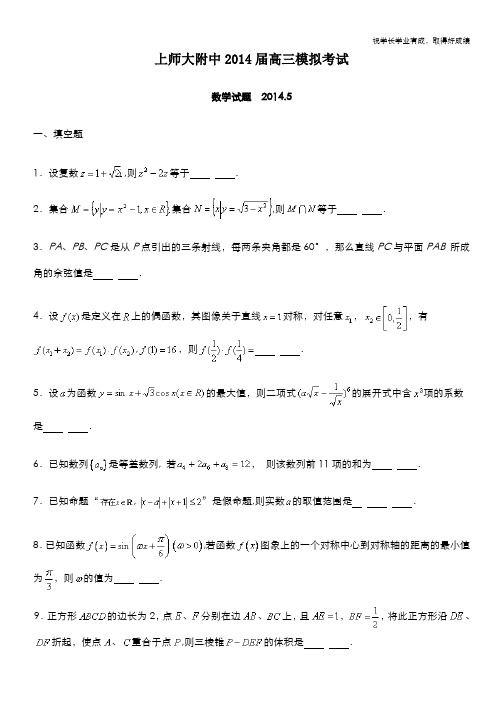 祝学长学业有成，取得好成绩
上师大附中2014届高三模拟考试
数学试题 2014.5
一、填空题
1．设复数 z=1+√2i,则 z²−2z 等于____ ____．
2．集合 M={y|y=x²−1,x∈R},集合 N={x|y=√(3−x²)},则 M∩N 等于____ ____．
3．PA、PB、PC是从P点引出的三条射线，每两条夹角都是60°，那么直线PC与平面PAB所成
角的余弦值是____ ____．
4．设 f(x) 是定义在 R 上的偶函数，其图像关于直线 x=1 对称，对任意 x₁， x₂∈[0,1/2]，有
f(x₁+x₂)=f(x₁)·f(x₂),f(1)=16，则 f(1/2)·f(1/4)=____ ____．
5．设 a 为函数 y=sin x+√3cos x(x∈R) 的最大值，则二项式 (a√x−1/√x)⁶ 的展开式中含 x² 项的系数
是____ ____．
6．已知数列{aₙ}是等差数列, 若 a₄+2a₆+a₈=12， 则该数列前11项的和为____ ____．
7．已知命题“存在x∈R，|x−a|+|x+1|≤2”是假命题,则实数 a 的取值范围是__ ____．
8.已知函数 f(x)=sin(ωx+π/6)(ω>0),若函数 f(x) 图象上的一个对称中心到对称轴的距离的最小值
为 π/3，则 ω 的值为____ ____．
9．正方形ABCD的边长为2，点E、F分别在边AB、BC上，且 AE=1，BF=1/2，将此正方形沿DE、
DF折起，使点A、C重合于点P,则三棱锥 P−DEF 的体积是____ ____．